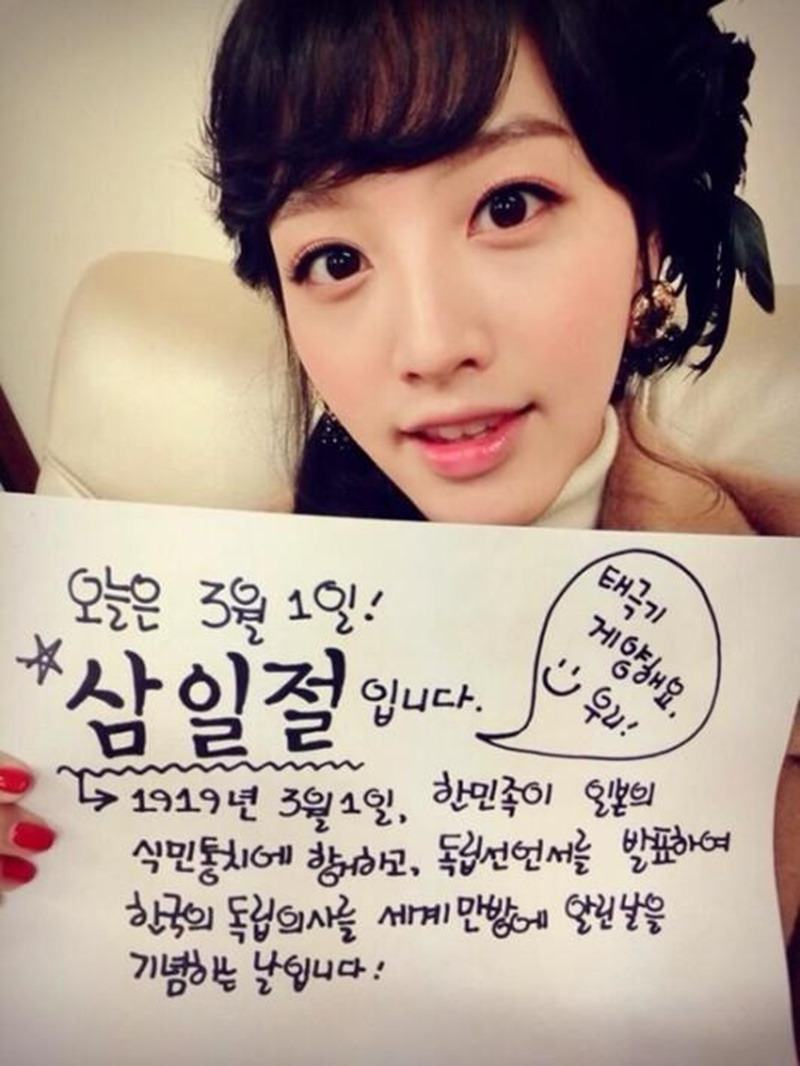 오늘은 3월 1일!
삼일절 입니다.
태극기
게양해요.
우리!
→ 1919년 3월 1일, 한민족이 일본의
식민통치에 항거하고, 독립선언서를 발표하여
한국의 독립의사를 세계만방에 알린 날을
기념하는 날입니다!